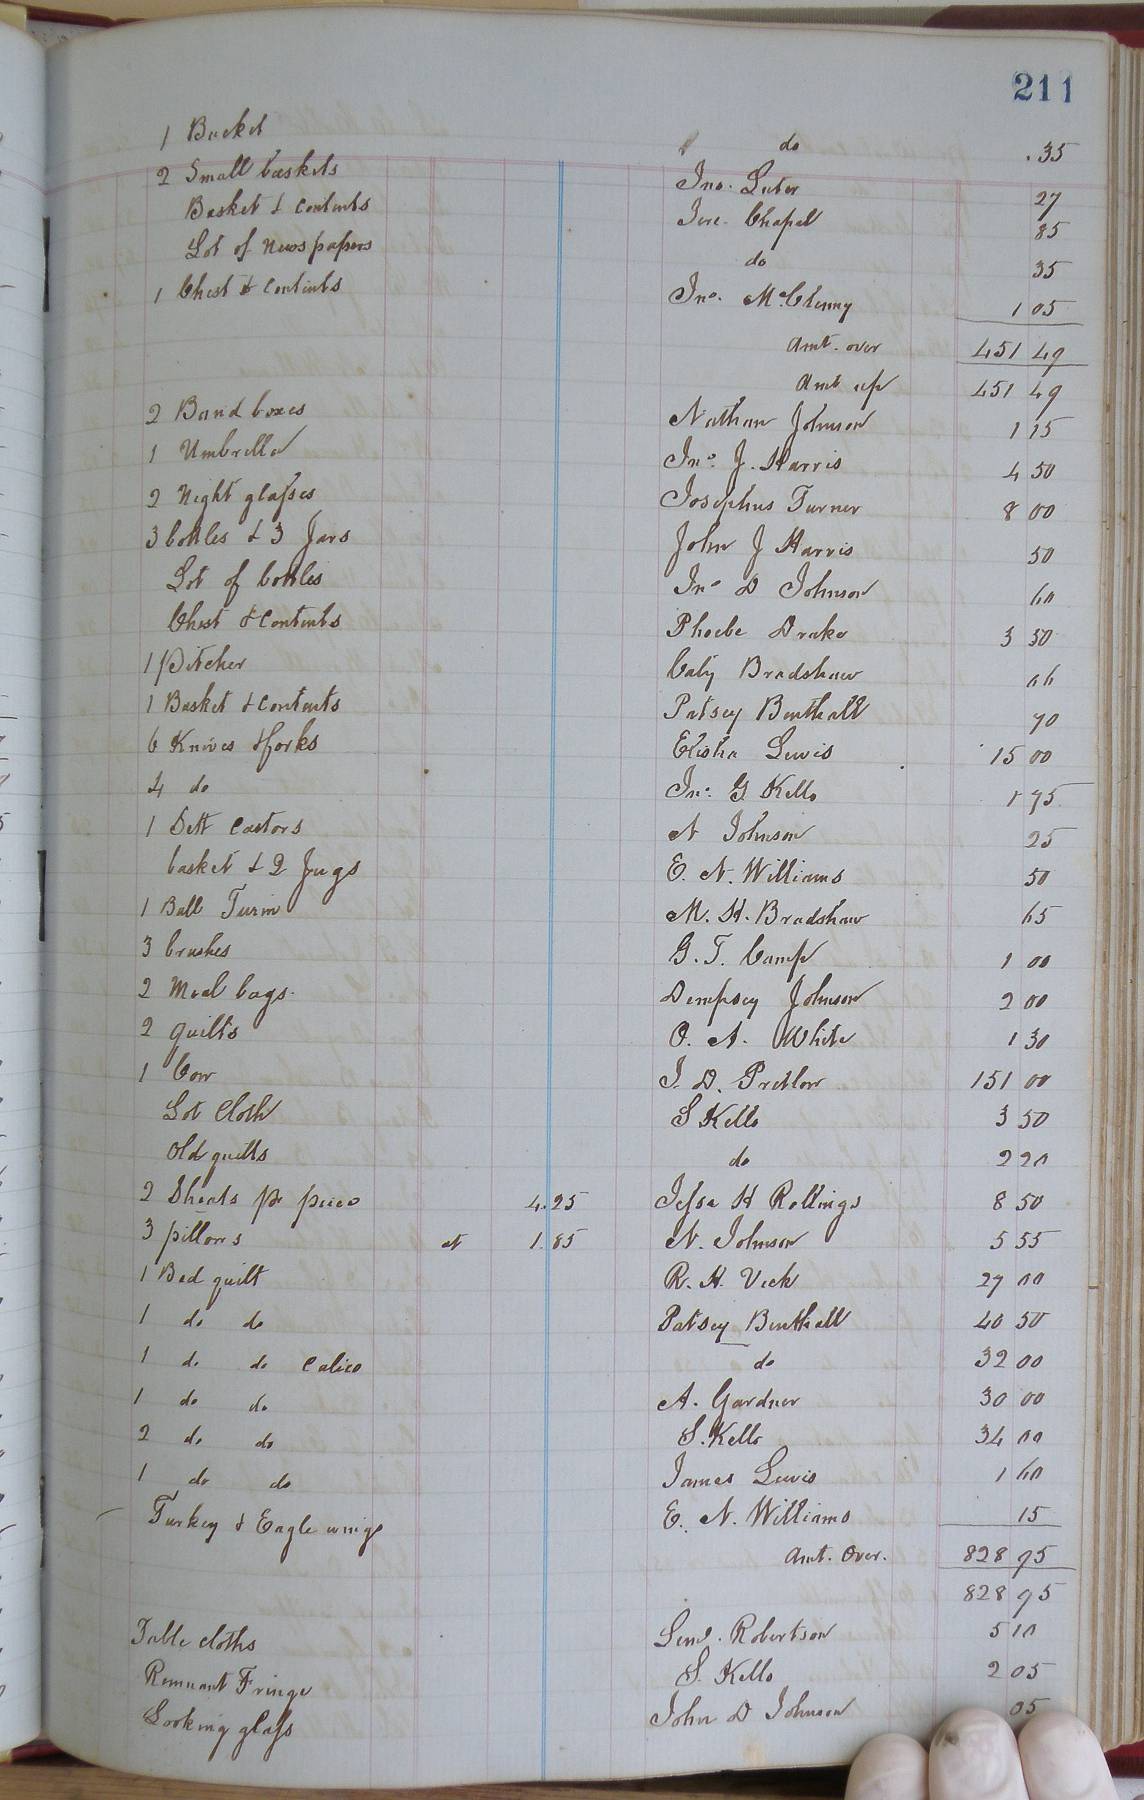 211
1 Bucket do .35
2 Small baskets Jno. Luter 27
Basket & contents Jere. Chapel 85
Lot of Newspapers do 35
1 Chest & contents Jno. McClenny 1 05
Amt. over 451 49
Amt up 451 49
2 Band boxes Nathan Johnson 1 15
1 Umbrella Jno. J. Harris 4 50
2 Night glasses Josephus Turner 8 00
3 bottles & 3 Jars John J Harris 50
Lot of bottles Jno D Johnson 60
Chest & Contents Phoebe Drake 3 50
1 Pitcher Caty Bradshaw 06
1 Basket & contents Patsey Benthall 70
6 Knives & forks Elisha Lewis 15 00
4 do Jno. G Kello 1 75
1 Sett Castors N Johnson 25
basket & 2 Jugs E. N. Williams 50
1 Ball M. H. Bradshaw 65
3 brushes G. T. Camp 1 00
2 Meal bags. Dempsey Johnson 2 00
2 quilts O. A. White 1 30
1 Cow J. D. Pretlow 151 00
Lot Cloth S Kello 3 50
Old quilts do 2 20
2 Sheats pr piece 4.25 Jesse H Rollings 8 50
3 pillows at 1.85 N. Johnson 5 55
1 Bed quilt R. H. Vick 27 00
1 do do Patsey Benthall 40 50
1 do do Calico do 32 00
1 do do A. Gardner 30 00
2 do do S. Kello 34 00
1 do do James Lewis 1 60
Turkey & Eagle wings E. N. Williams 15
Amt. Over. 828 95
828 95
Table cloths Robertson 5 10
Remnant Fringe S. Kello 2 05
Looking glass John D Johnson 05